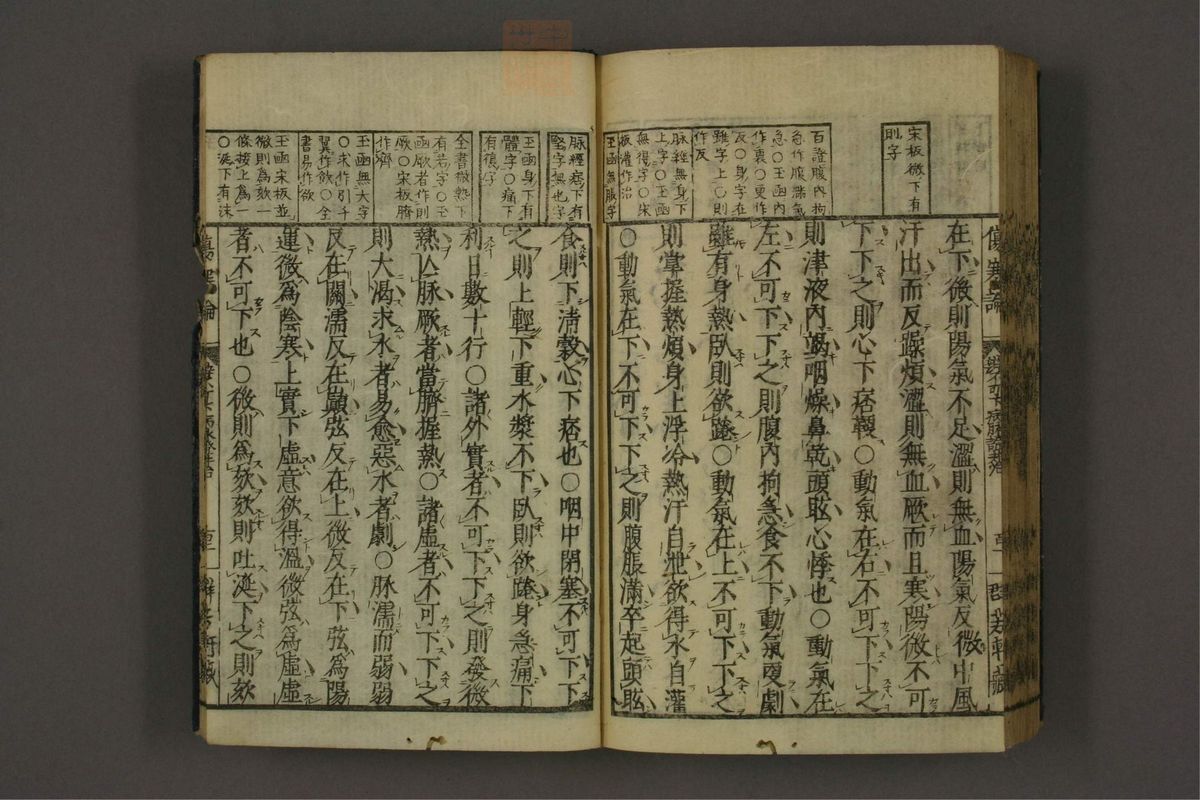 宋板微下有
則字
百證腹內拘
急作腹滿氣
急○玉函內
作裏○更作
反○身字在
雖字上○則
作反
脉經無身下
上字○玉函
無得字○宋
板灌作治
玉函無脹字
傷寒論
在下後則陽氣不足濇則無血陽氣反微中風
汗出而反躁煩濇則無血厥而且寒陽微不可
下下之則心下痞鞕○動氣在右不可下下之
則津液內竭咽燥鼻乾頭眩心悸也○動氣在
左不可下下之則腹內拘急食不下動氣更劇
雖有身熱臥則欲踡○動氣在上不可下下之
則掌握熱煩身上浮冷熱汗自泄欲得水自灌
○動氣在下不可下下之則腹脹滿卒起頭眩
脉經痞下有
堅字無也字
玉函身下有
體字○痛下
有復字
全書微熱下
有若字○玉
函厥者作則
厥○宋板臍
作齊
玉函無大字
○求作引千
翼作飲○全
書易作欲
玉函宋板並
微則為欬一
條接上為一
○涎下有沫
食則下淸穀心下痞也○咽中閉塞不可下下
之則上輕下重水漿不下臥則欲踡身急痛下
利日數十行○諸外實者不可下下之則發微
熱亾脉厥者當臍握熱○諸虛者不可下下之
則大渴求水者易愈惡水者劇○脉濡而弱弱
反在關濡反在巔弦反在上微反在下弦爲陽
運微爲陰寒上實下虛意欲得溫微弦爲虛虛
者不可下也○微則爲欬欬則吐涎下之則欬
傷寒論